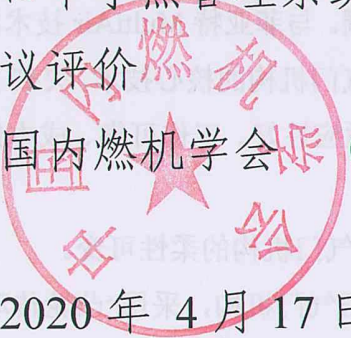 议评价
国内燃机学会
2020 年 4 月 17 日
中国内燃机学会